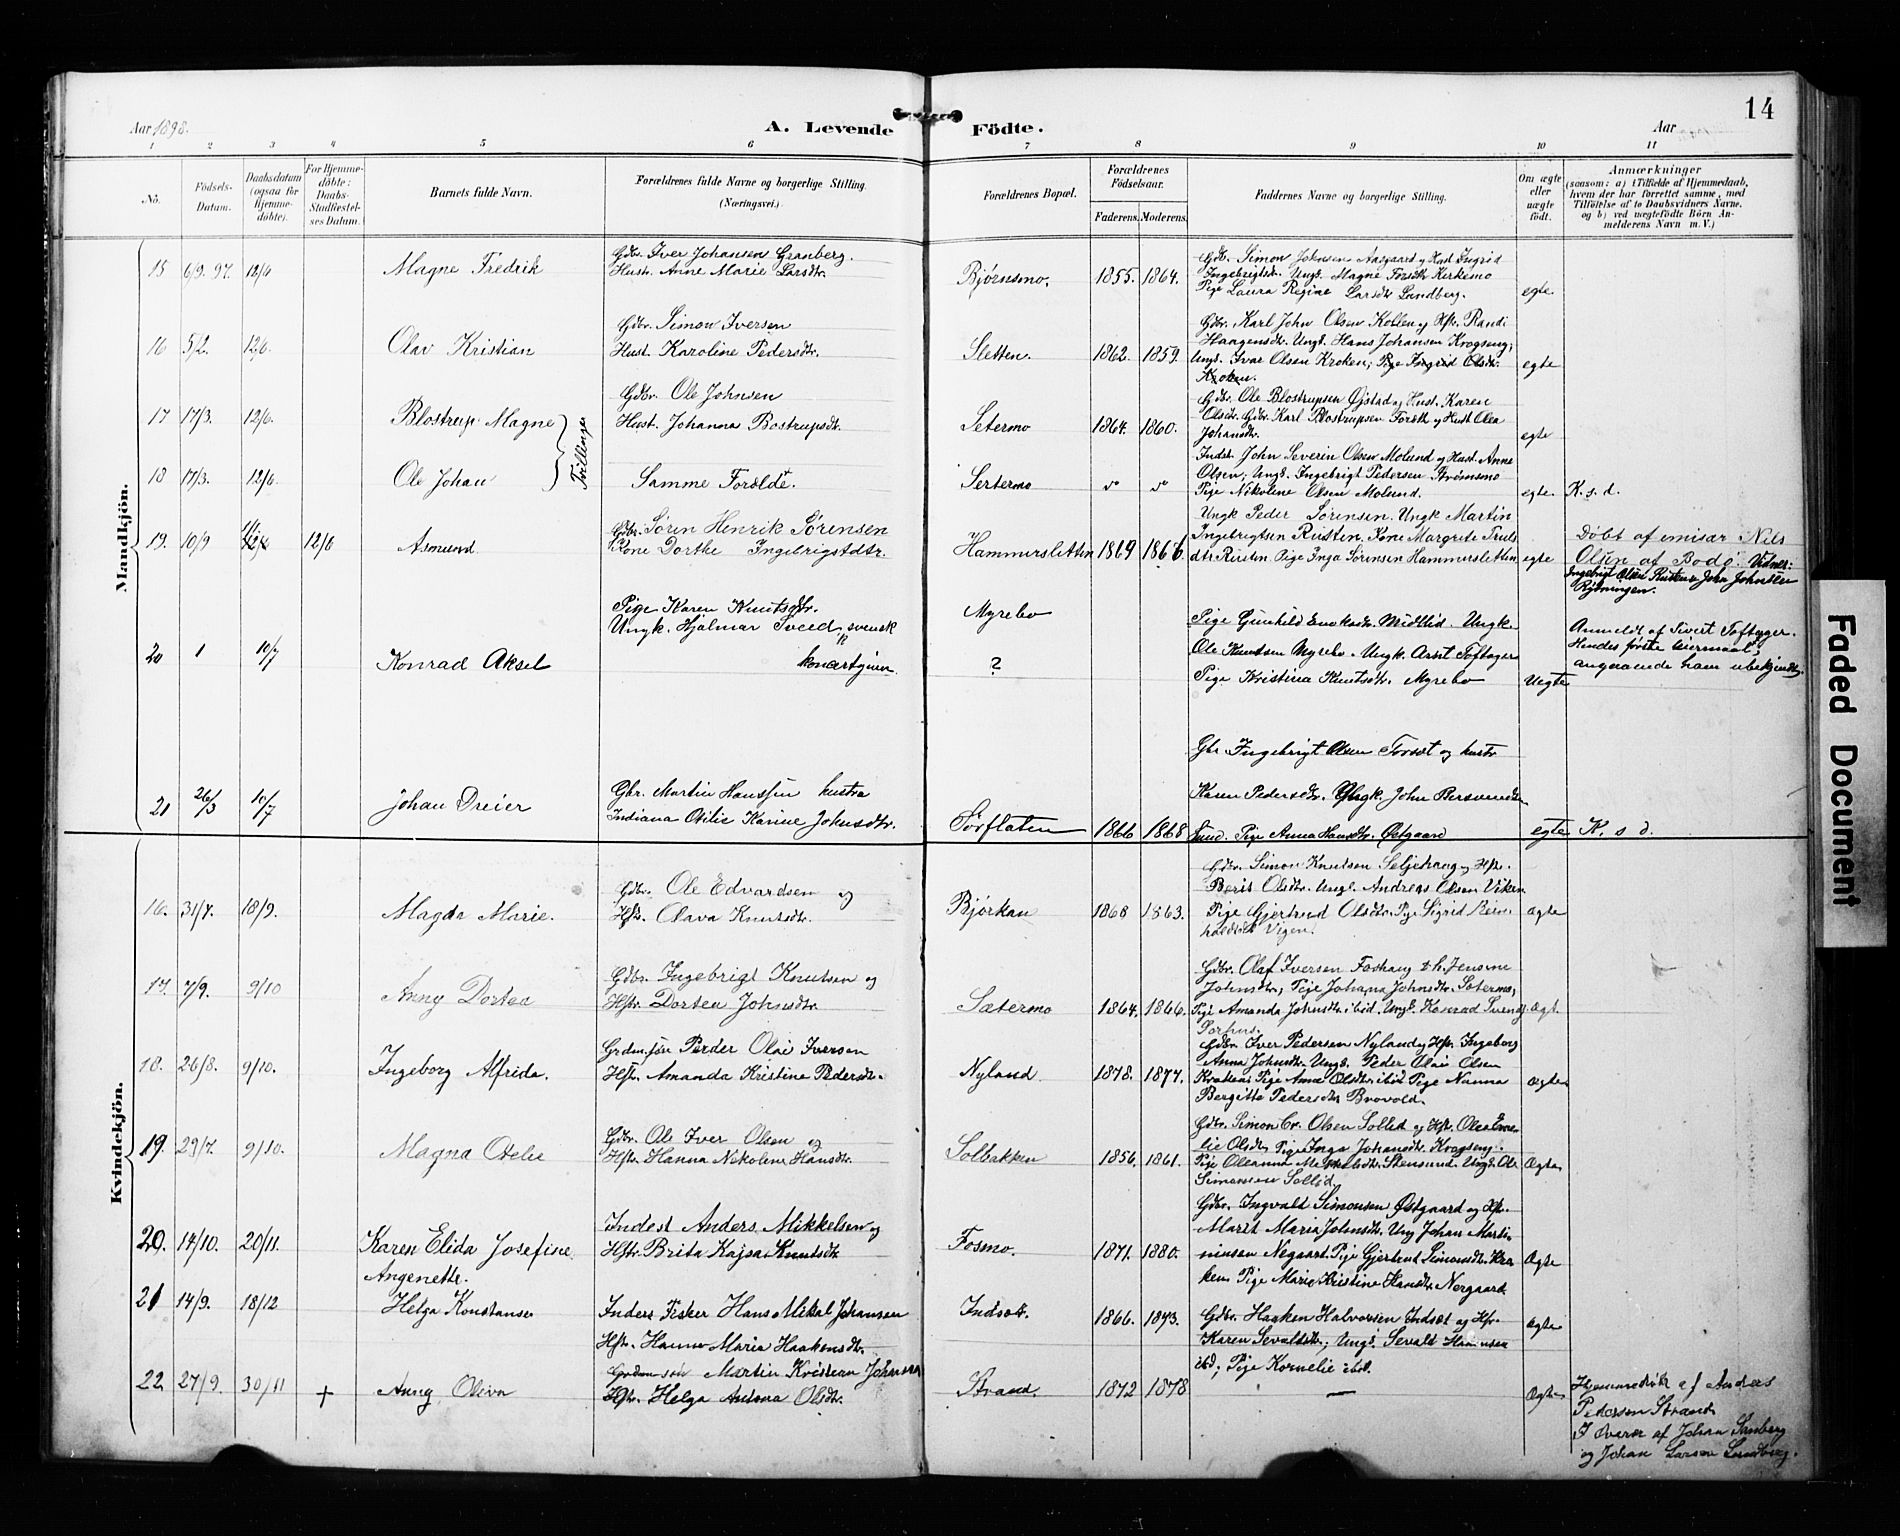 14
Aar 1898.
A. Levende Födte.
Aar
1 2 3 4 5 6 7 8 9 10 11
No.
Födsels-Datum.
Daabsdatum (ogsaa for Hjemme-döbte).
For Hjemme-döbte: Daabs-Stadfæstelses Datum.
Barnets fulde Navn.
Forældrenes fulde Navne og borgerlige Stilling. (Næringsvei.)
Forældrenes Bopæl.
Forældrenes Födselsaar.
Faderens. Moderens.
Faddernes Navne og borgerlige Stilling.
Om ægte eller uægte födt.
Anmærkninger
(saasom: a) i Tilfælde af Hjemmedaab,
hvem der har forrettet samme, med
Tilföielse af to Daabsvidners Navne.
og b) ved uægtefödte Börn An-
melderens Navn m. V.)
Mandkjön.
15 6/9. 97. 12/6 Magne Fredrik
Gdbr. Iver Johansen Granberg.
Hust. Anne Marie Larsdtr.
Bjørnsmo. 1855. 1864.
Gdb. Simon Johnsen Aasgaard og Hust Ingrid
Ingebrigtsd. Ungk. Magne Forsth Kirkemo
Pige Laura Regine Larsdtr Lundberg.
egte.
16 5/2. 12/6. Olav Kristian
Gdbr. Simon Iversen
Hust. Karoline Pedersdtr.
Sletten. 1862. 1859.
Gdbr. Karl John Olsen Kollen og Hfr. Randi
Haagensdtr. Ungk. Hans Johansen Krogseng;
Ungk. Ivar Olsen Kroken; Pige Ingrid Olsdtr.
Kroken.
egte
17 17/3. 12/6. Blostrup Magne
Tvillinger
Gdbr. Ole Johnsen
Hust. Johanna Bostrupsdtr.
Setermo 1864. 1860.
Gdbr. Ole Blostrupsen Øjstad og Hust. Karen
Olsdtr. Gdbr. Karl Blostrupsen Forsth og Hust Olea
Johansdtr.
egte
18 17/3. 12/6 Ole Johan
Samme Forælde.
Setermo
Indst. John Severin Olsen Molund og Hust. Anne
Olsen; Ungk. Ingebrigt Pedersen Strømsmo
Pige Nikoline Olsen Molund.
egte. K. s. d.
19. 10/9 12/6 Asmund
Gdbr. Søren Henrik Sørensen
Kone Dorthe Ingebrigtsdtr.
Hammersletten 1869 1866
Ungk Peder Sørensen. Ungk Martin
Ingebrigtsen Rusten. Kone Margrete Truls
dtr. Rusten Pige Inga Sørensen Hammersletten
egte
Døbt af emisær Nils
Olsen af Bodø. Vidner:
Ingebrigt Olsen Rusten og John Johnsen
Rydningen.
20 1 10/7 Konrad Aksel
Pige Karen Knutsdtr.
Ungk. Hjalmar Sveed, svensk
Myrebo
?
Pige Gunhild Enoksdtr. Midtlid. Ungk.
Ole Knutsen Myrebo. Ungk. Arnt Toftager
Pige Kristina Knutsdtr. Myrebo
Uegte
Anmeldt af Sivert Toftager.
Hendes første leiermaal,
angaaende ham ubekjendt.
21 26/3 10/7 Johan Dreier
Gbr. Martin Hanssen hustru
Indiana Otilie Karine Johnsdtr.
Sørflaten 1866 1868
Gbr. Ingebrigt Olsen Forsæt og hustr
Karen Pedersdtr. Ungk. John Bersvendsen
Sund. Pige Anna Hansdtr. Østgaard
egte K. s d.
Kvindekjön.
16. 31/7. 18/9. Magda Marie.
Gdbr. Ole Edvardsen og
Hfr. Olava Knutsdtr.
Bjørkan 1868 1863.
Gdbr. Simon Knutsen Seljehaug og Hfr.
Berit Olsdtr. Ungk. Andreas Olsen Viken
Pige Gjertrud Olsdtr. Pige Sigrid Bern-
holdsdt Vigen.
Ægte
17. 7/9. 9/10 Anny Dortea
Gdbr. Ingebrigt Knutsen og
Hfr. Dortea Johnsdtr.
Sætermo 1864. 1866.
Gdbr. Olaf Iversen Foshaug & h. Jensine
Johnsdtr; Pige Johana Johnsdtr. Sætermo;
Pige Amanda Johnsdtr. ibid. Ungk. Konrad Svends.
Sørhus.
Ægt.
18. 26/8. 9/10. Ingeborg Alfrida.
Grdm.søn Peder Olai Iversen
Hfr. Amanda Kristine Pedersdtr.
Nyland. 1878. 1877.
Gdbr. Iver Pedersen Nyland og Hfr. Ingeborg
Anna Johnsdtr. Ungk. Peder Olai Olsen
Kroken Pige Anna Olsdtr. ibid Pige Nanna
Bergitte Pedersdtr Brovold.
Ægte
19. 29/7. 9/10. Magna Otelie
Gdbr. Ole Iver Olsen og
Hfr. Hanna Nikoline Hansdtr.
Solbakken 1856. 1861.
Gdbr. Simon Cr. Olsen Sollid og Hfr. Olea Eme-
lie Olsdtr, Pige Inga Johansdtr. Krogseng.
Pige Oleanna Stensund. Ungk. Ole
Simonsen Sollid.
Ægte
20. 14/10. 20/11. Karen Elida Josefine
Angenette.
Indest Anders Mikkelsen og
Hfr. Brita Kajsa Knutsdtr.
Fosmo. 1871. 1880.
Gdbr. Ingvald Simonsen Østgaard og Hfr.
Marit Maria Johnsdtr. Ung Johan Marti-
ninsen Negaart. Pige Gjertrud Simonsdtr. Kro-
ken. Pige Marie Kristine Hansdtr Nergaard
Ægte
21 14/9. 18/12 Helga Konstanse
Inders Fisker Hans Mikal Johansen
Hfr. Hanna Maria Haakensdtr.
Indsæt. 1866. 1873.
Gdbr. Haaken Halvorsen Indsæt og Hfr.
Karen Sevaldsdtr.; Ungk. Sevald Haakensen
ibd; Pige Kornelie ibid.
Ægte
22 27/9. 30/11 + Anny Oliva
Grdm.søn Martin Kristian Johansen
Hfr. Helga Antona Olsdtr.
Strand. 1872 1878
—
Ægte
Hjemmedøbt af Andreas
Pedersen Strand.
I Overvær af Johan Sandberg
og Johan Larsen Lundberg.
Faded Document